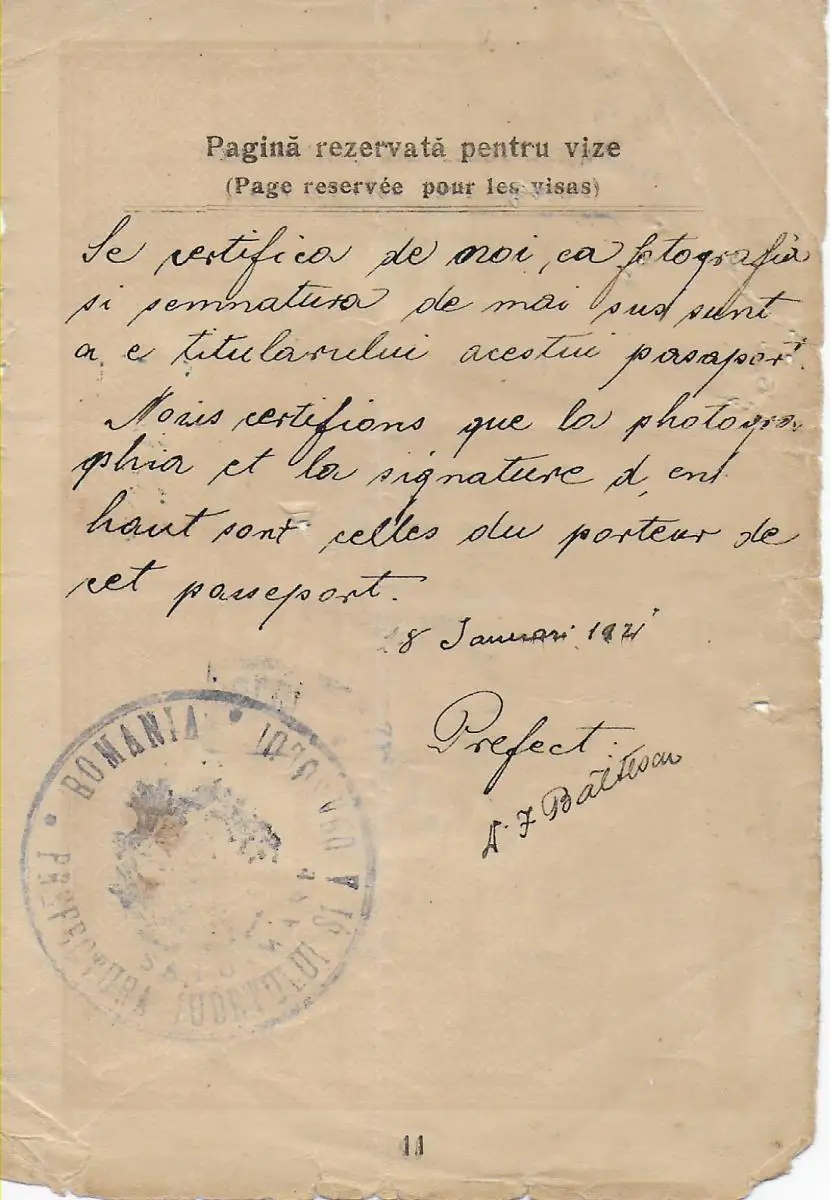 Pagină rezervată pentru vize
(Page reservée pour les visas)
Se certifica de noi, ca fotografia
si semnatura de mai sus sunt
a e titularului acestui pasaport.
Nous certifions que la photogra
phia et la signature d, en
haut sont celles du porteur de
cet passeport.
8 Januari 1921
Prefect.
Băltescu
ROMANIA
PREFECTURA JUDETULUI
11